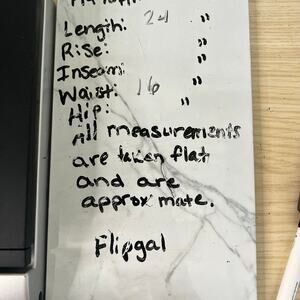 Length: 24 "
Rise: "
Inseam: "
Waist: 16 "
Hip: "
All measurements
are taken flat
and are
approximate.
Flipgal